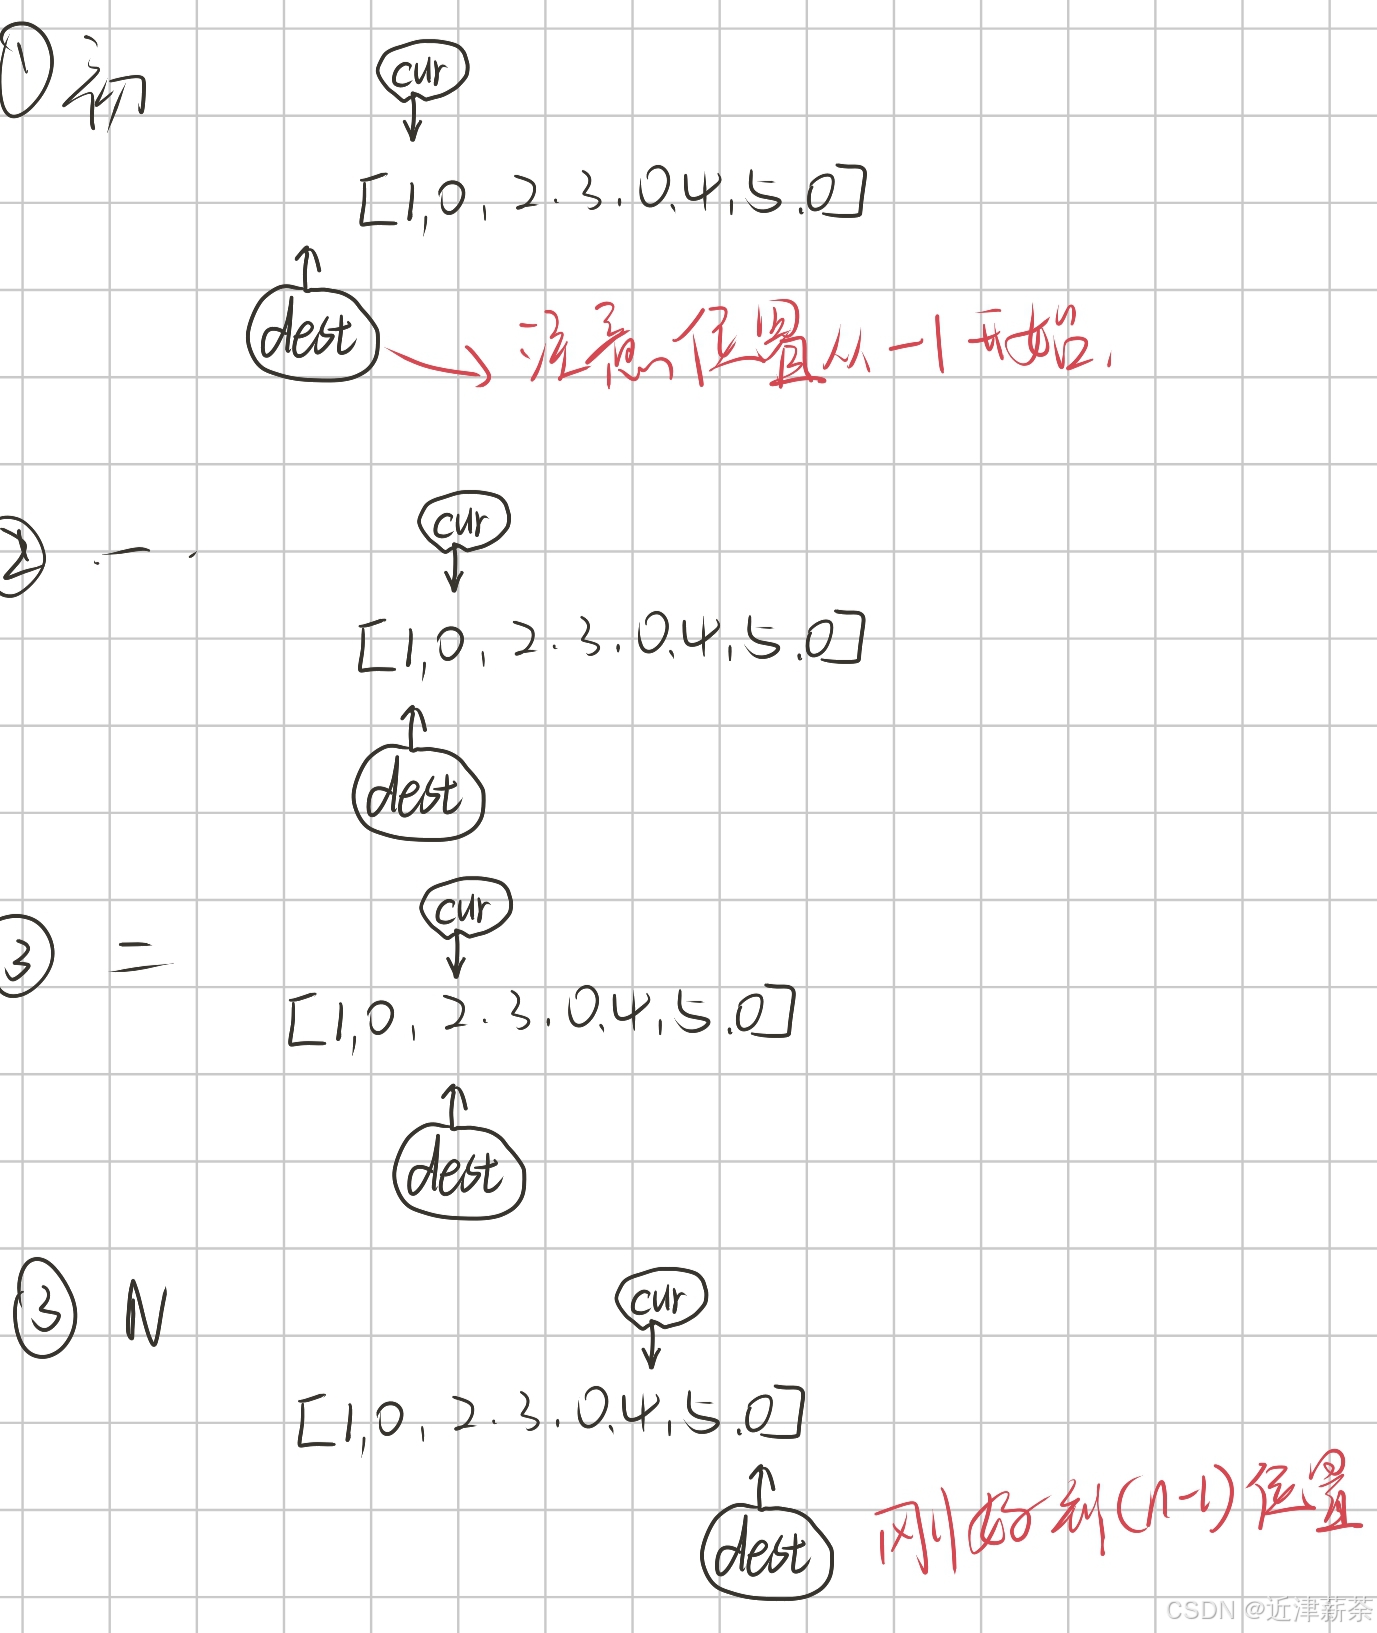 ① 初
cur
[1,0,2.3.0.4,5.0]
dest
注意位置从-1开始.
② 一.
cur
[1,0,2.3.0.4,5.0]
dest
③ 二
cur
[1,0,2.3.0.4,5.0]
dest
③ N
cur
[1,0,2.3.0.4,5.0]
dest
刚好到(n-1)位置
CSDN @近津薪荼